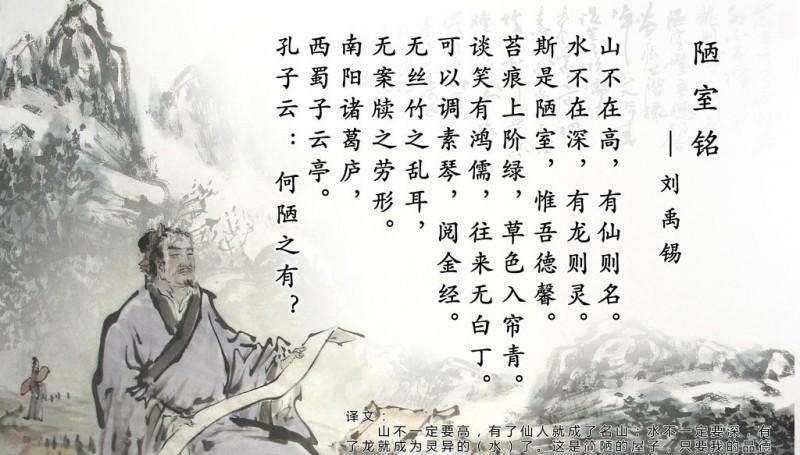 陋室铭
—刘禹锡
山不在高，有仙则名。
水不在深，有龙则灵。
斯是陋室，惟吾德馨。
苔痕上阶绿，草色入帘青。
谈笑有鸿儒，往来无白丁。
可以调素琴，阅金经。
无丝竹之乱耳，
无案牍之劳形。
南阳诸葛庐，
西蜀子云亭。
孔子云：何陋之有？
译文：
山不一定要高，有了仙人就成了名山；水不一定要深，有
了龙就成为灵异的（水）了。这是简陋的屋子，只要我的品德